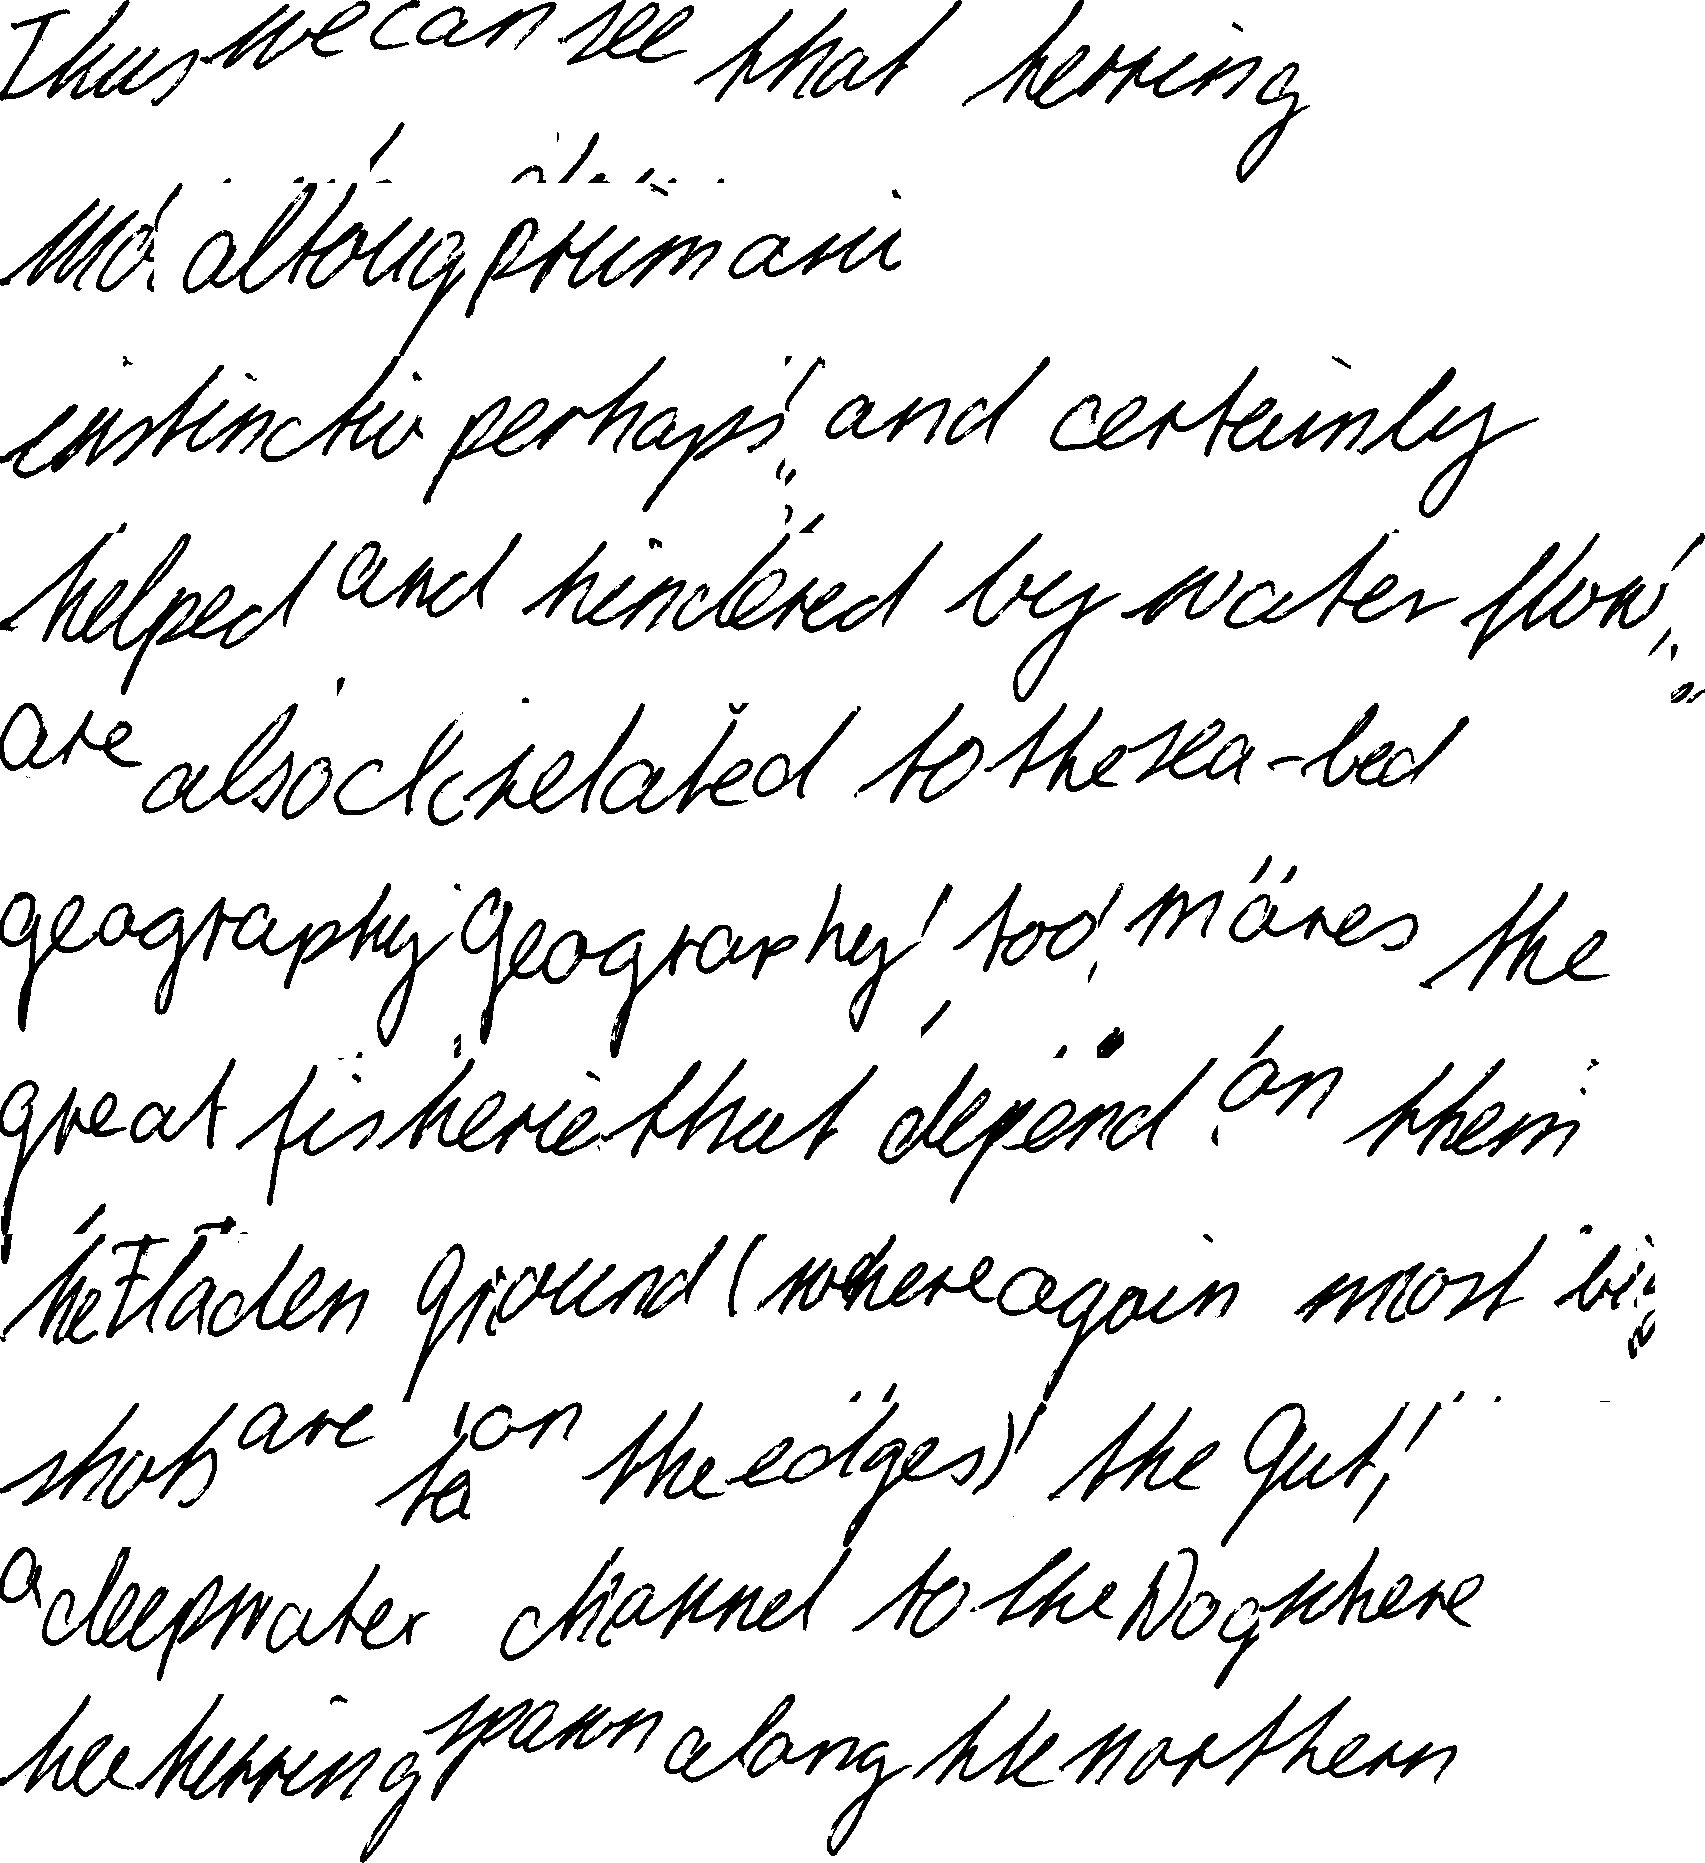 Thus we can see that herring
altoug primari
instinctiv perhaps, and certainly
helped and hindered by water flow,
are also related to the sea-bed
geography Geography, too, mares the
great fisherie that depend on them
he Fladen Ground (where again most big
shots are on the edges), the Gut,
a deepwater channel to the Dog where
hee herring spawn along hte northern